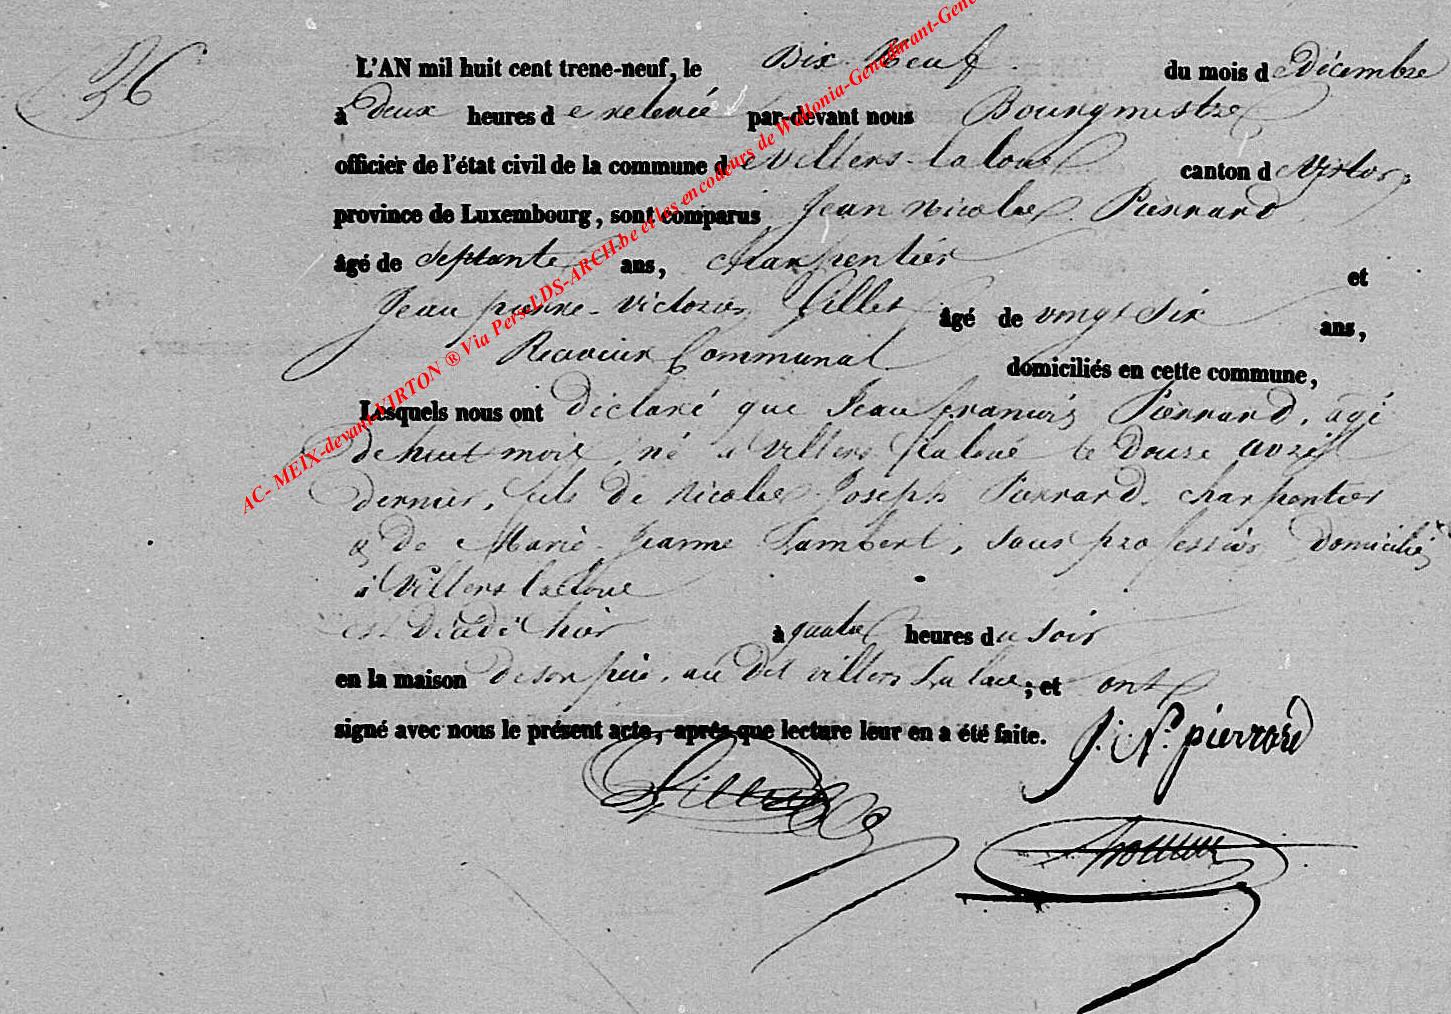 26
L'AN mil huit cent trene-neuf, le Dix Neuf du mois de Décembre
à deux heures de relevée par-devant nous Bourgmestre
officier de l'état civil de la commune de Villers-la loue canton de Virton
province de Luxembourg, sont comparus Jean Nicolas Pierrard
âgé de Septante ans, Charpentier et
Jean pierre-Victorin Gillet âgé de vingt Six ans,
Receveur Communal domiciliés en cette commune,
Lesquels nous ont déclaré que Jean francois Pierrard, agé
de huit mois, né à Villers laloue le Douze avril
dernier, fils de Nicolas Joseph Pierrard, charpentier
& de Marie-Jeanne Lambert, sans profession, domiciliés
à Villers laloue
est décédé hier à quatre heures du soir
en la maison de son père, au dit villers la loue; et ont
signé avec nous le présent acte, après que lecture leur en a été faite.
J: Ns. pierrard
Gillet
AC- MEIX-devant-VIRTON ® Via Pers-LDS-ARCH.be et les encodeurs de Wallonia-Genedinant-Gene